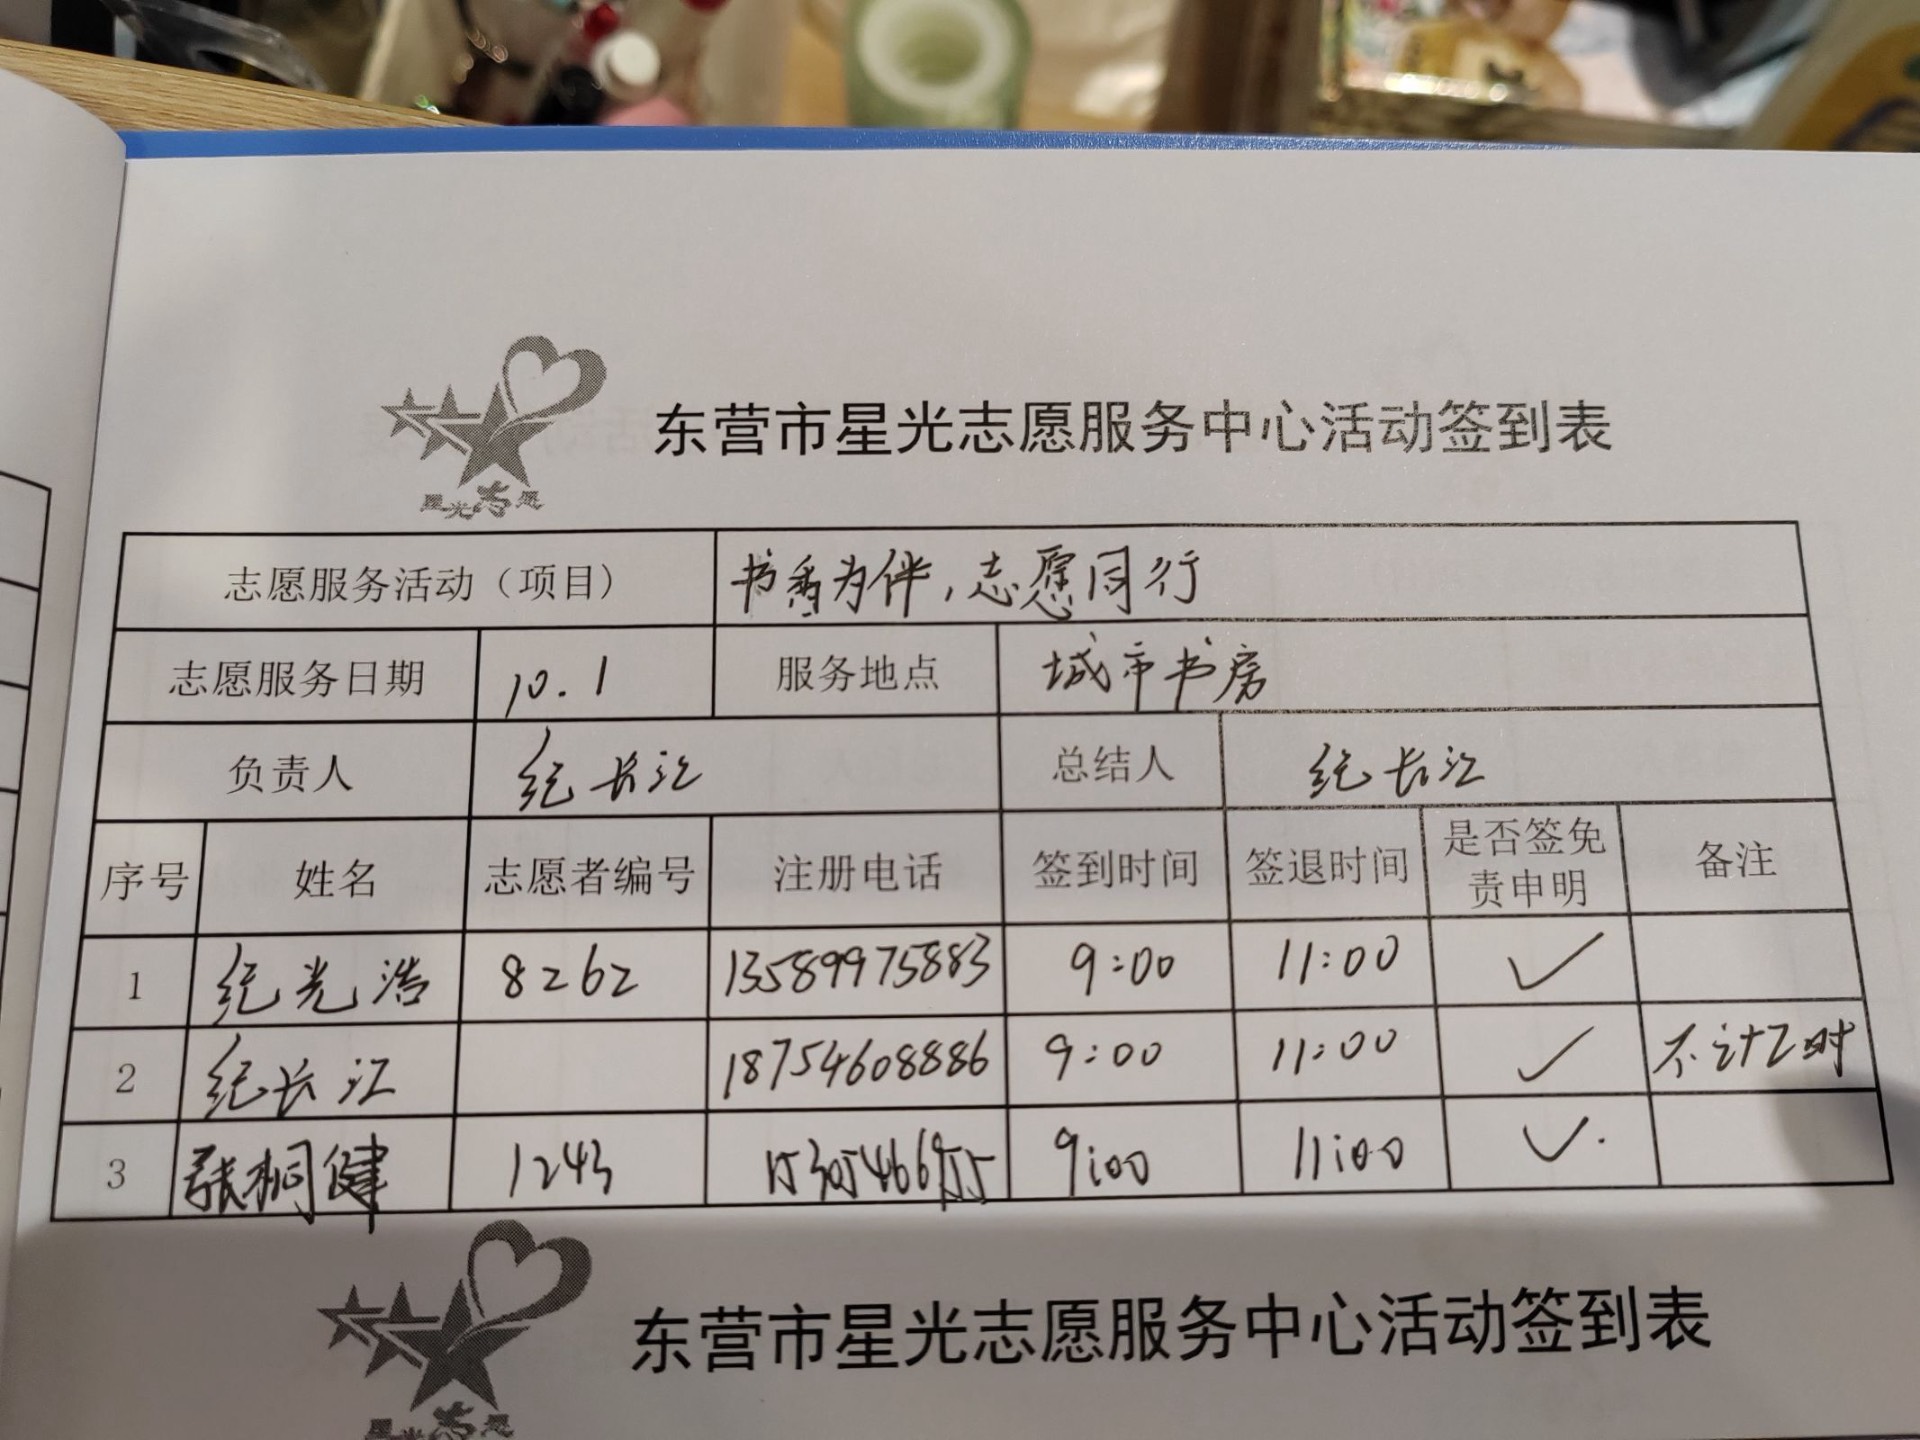 东营市星光志愿服务中心活动签到表
星光志愿
志愿服务活动（项目） 书香为伴，志愿同行
志愿服务日期 10.1 服务地点 城市书房
负责人 纪长江 总结人 纪长江
序号 姓名 志愿者编号 注册电话 签到时间 签退时间 是否签免责申明 备注
1 纪光浩 8262 13589975883 9:00 11:00 ✓
2 纪长江 18754608886 9:00 11:00 ✓ 不计工时
3 张桐健 1243 9:00 11:00 ✓
东营市星光志愿服务中心活动签到表
星光志愿